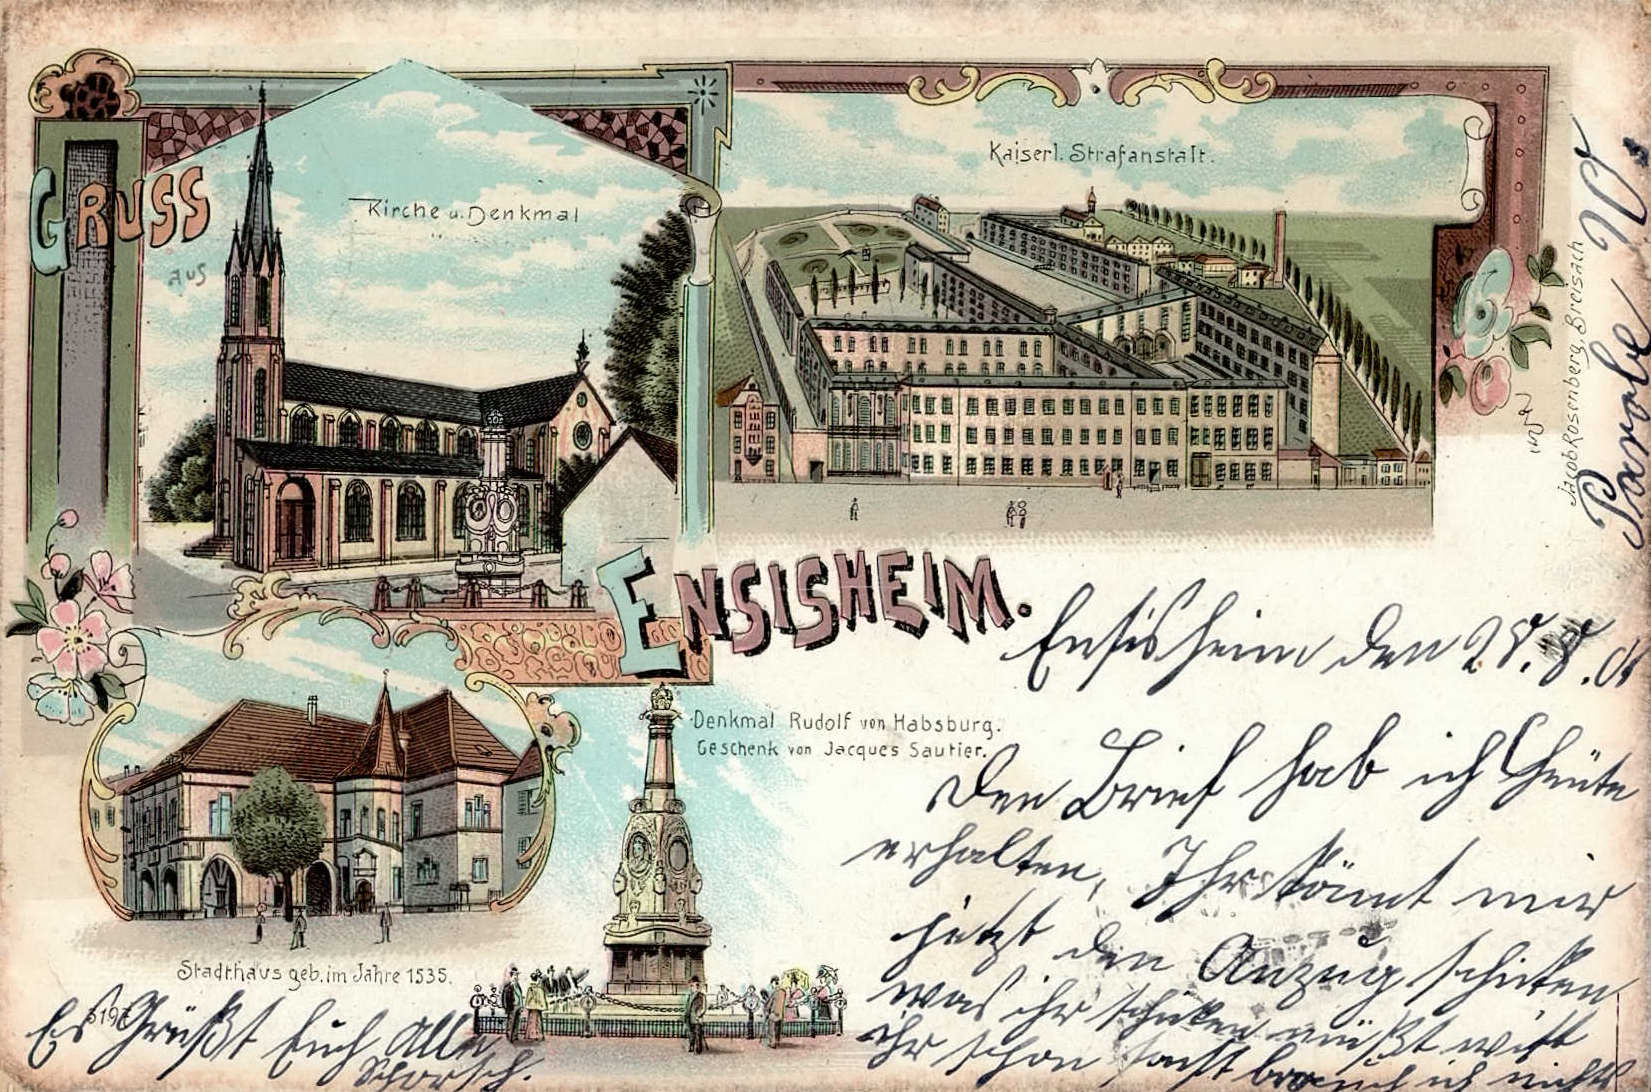 GRUSS
aus
Kirche u. Denkmal
Kaiserl. Strafanstalt.
ENSISHEIM.
Denkmal Rudolf von Habsburg.
Geschenk von Jacques Sautier.
Stadthaus geb. im Jahre 1535.
Jacob Rosenberg, Breisach
Parole
Ensisheim den 28.
Den Brief hab ich Heute
erhalten, Ihr könnt mir
jetzt den Anzug schicken
was ihr schicken müßt wißt
ihr schon sonst brauch ich nichts
Es Grüßt Euch Alle
Schorsch.